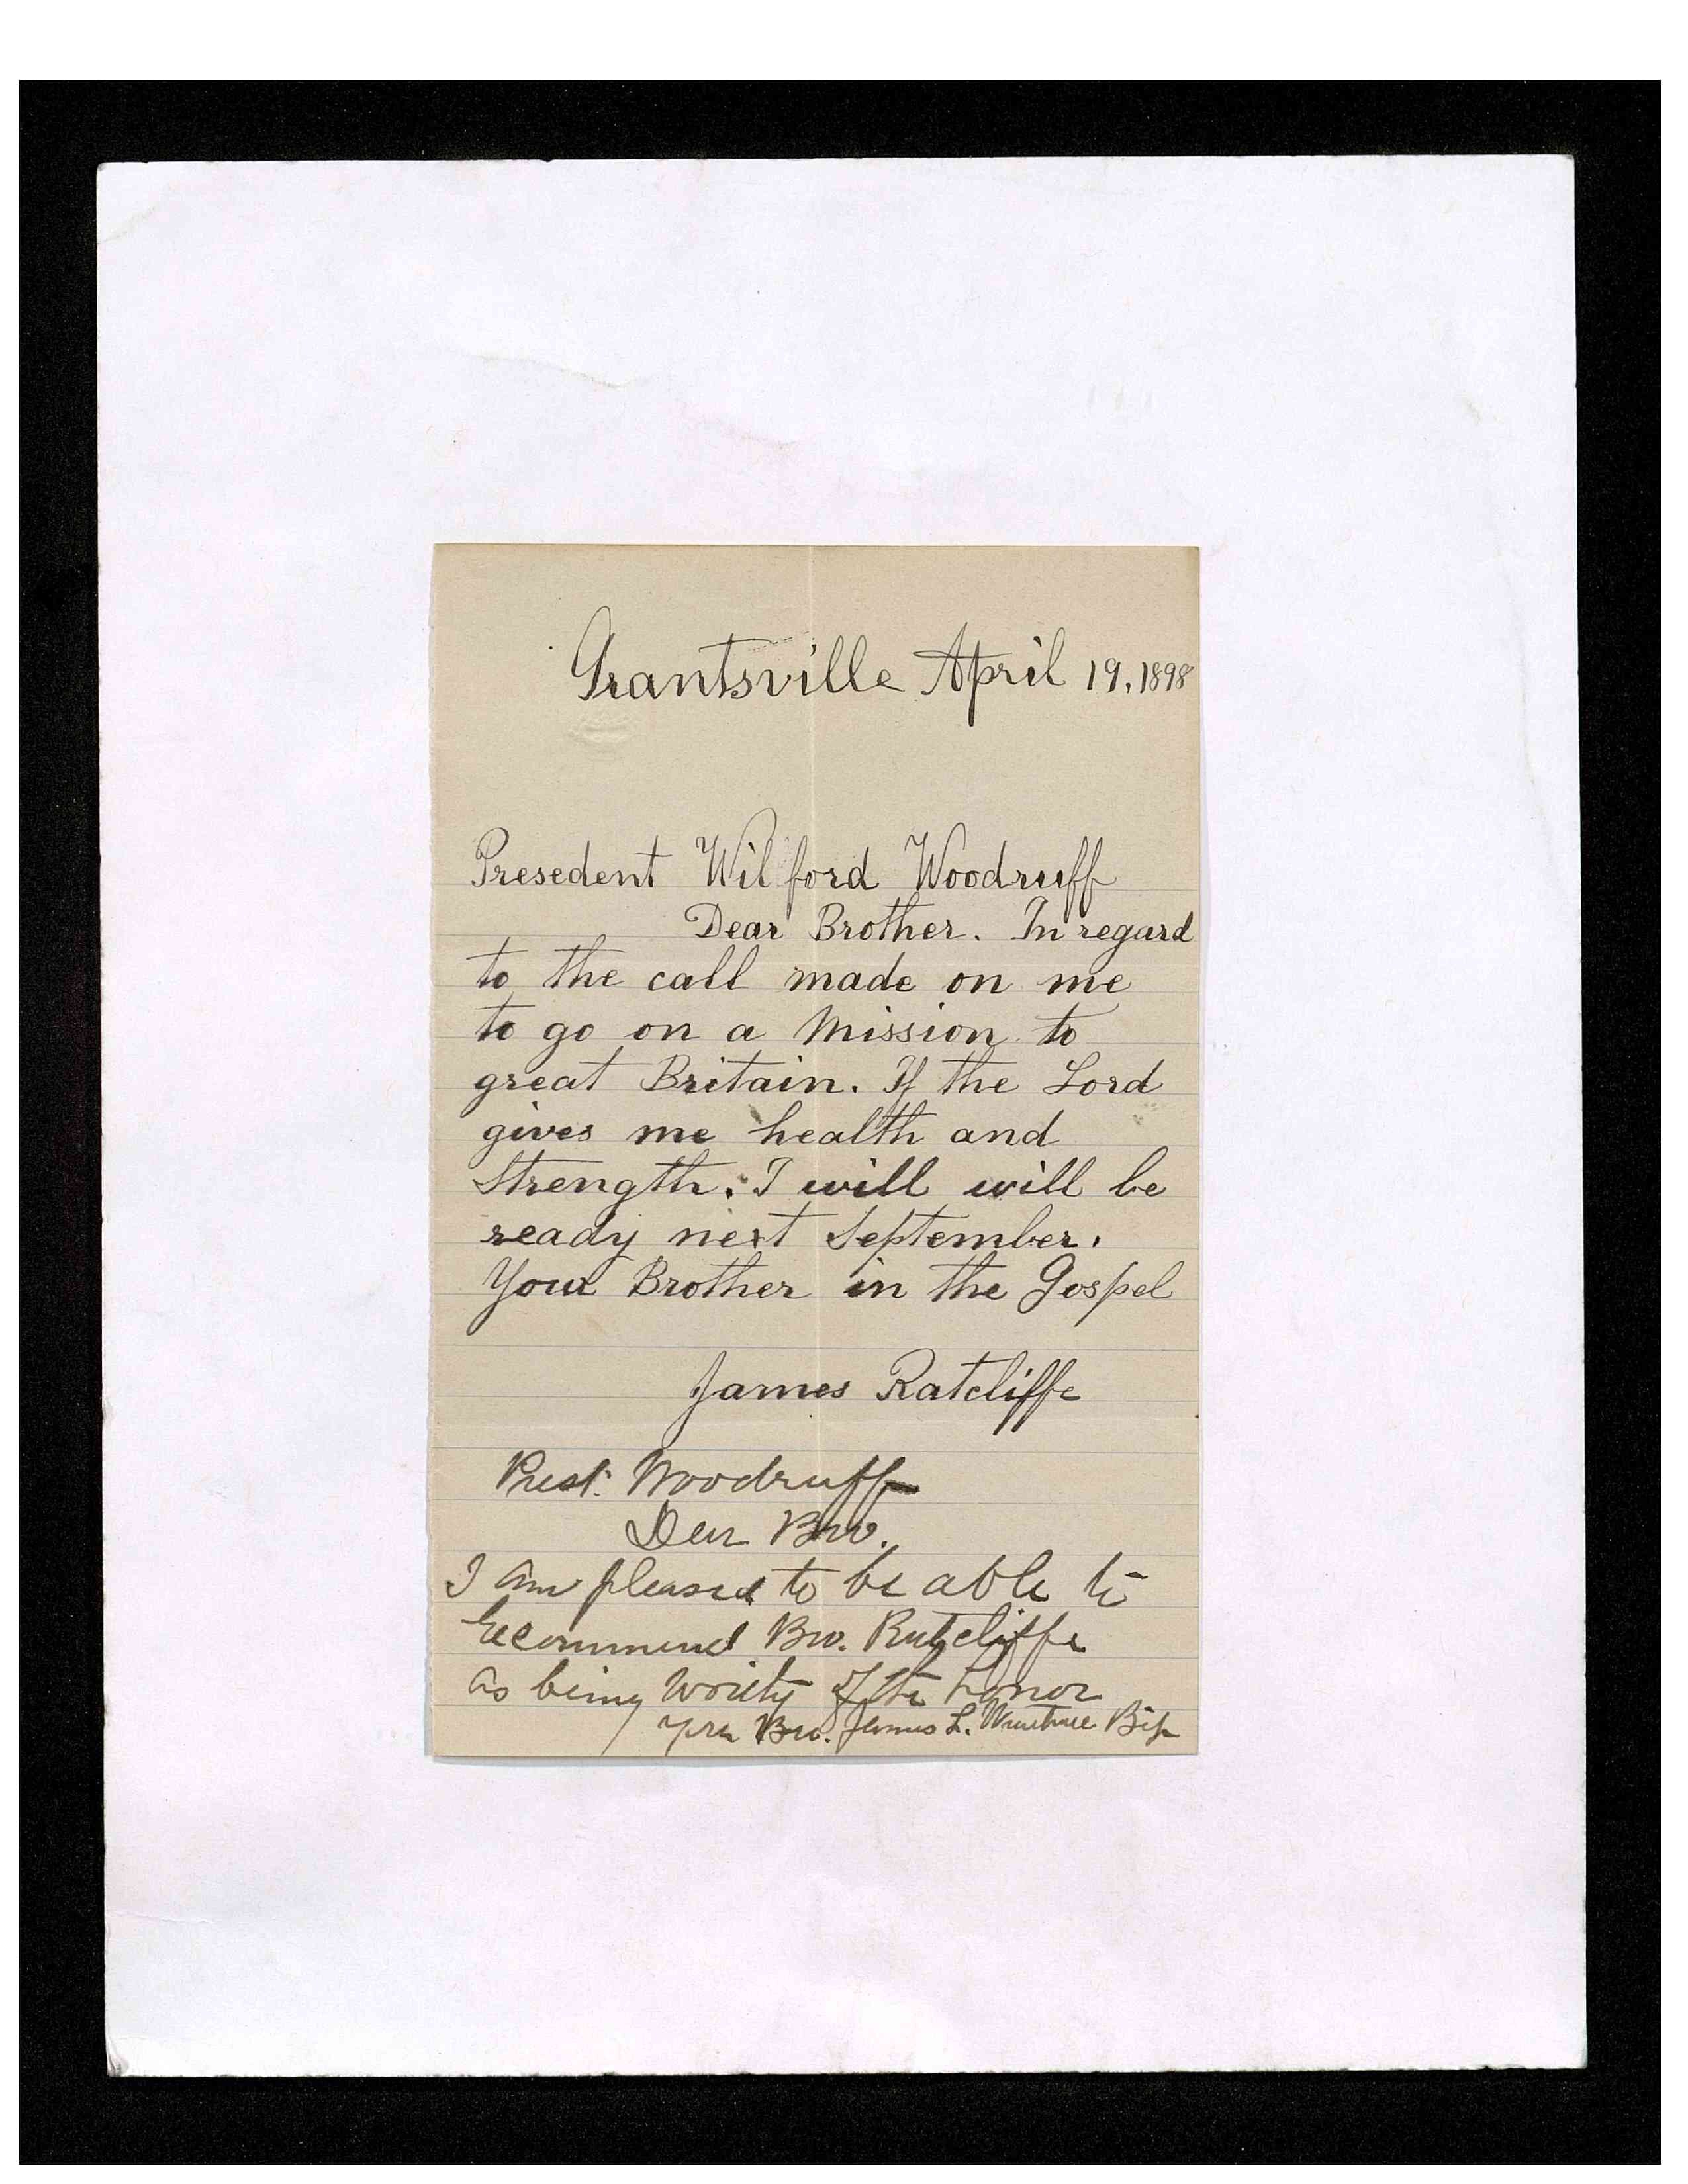 Grantsville April 19, 1898
Presedent Wilford Woodruff
Dear Brother. In regard
to the call made on me
to go on a Mission to
great Britain. If the Lord
gives me health and
Strength. I will will be
ready next September.
Your Brother in the Gospel
James Ratcliffe
Prest. Woodruff
Dear Bro.
I am pleased to be able to
recommend Bro. Ratcliffe
as being worthy of the honor
Bro. James L. Bish